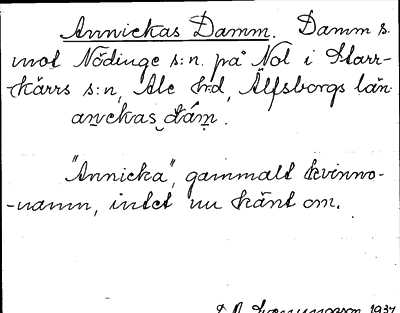 Annickas Damm. Damm s.
mot Nödinge s:n. på Nol i Starr-
kärrs s:n, Ale h:d, Älfsborgs län.
anekas dám.
"Annicka", gammalt kvinno-
-namn, intet nu känt om.
1937